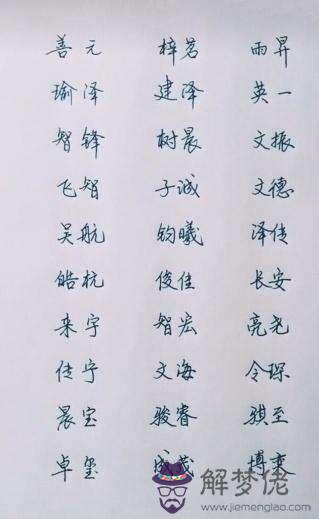 善元 梓茗 雨昇
瑜泽 建泽 英一
智锋 树晨 文振
飞智 子诚 文德
吴航 钧曦 泽传
皓杭 俊佳 长安
来宇 智宏 亮尧
佳宁 文海 令琛
晨宝 骏睿 骐至
卓玺 成茂 博襄
解梦佬
www.jiemenglao.com